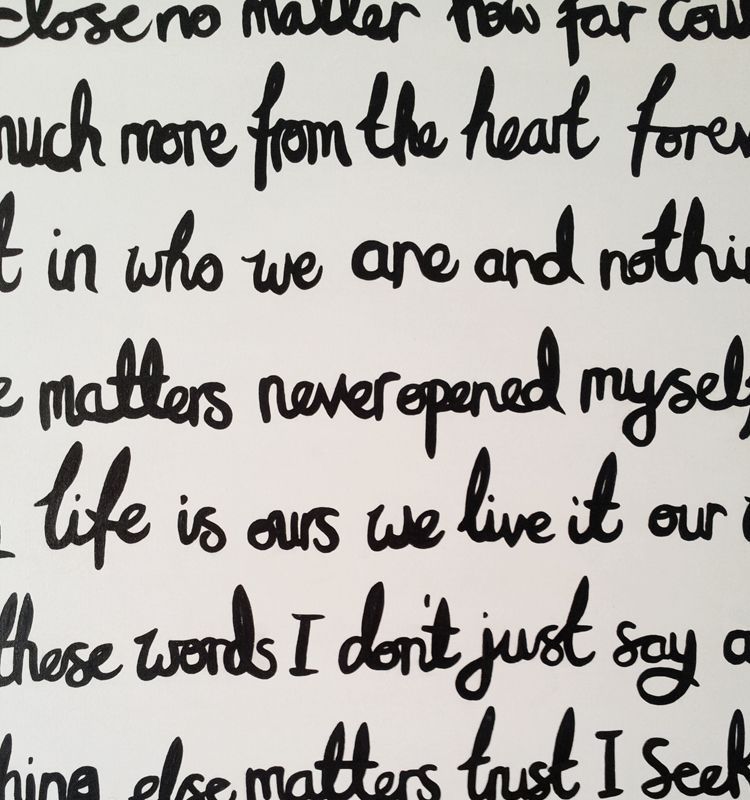 close no matter how far coul
much more from the heart forev
t in who we are and nothin
e matters never opened myself
life is ours we live it our
these words I don't just say a
hing else matters trust I Seek